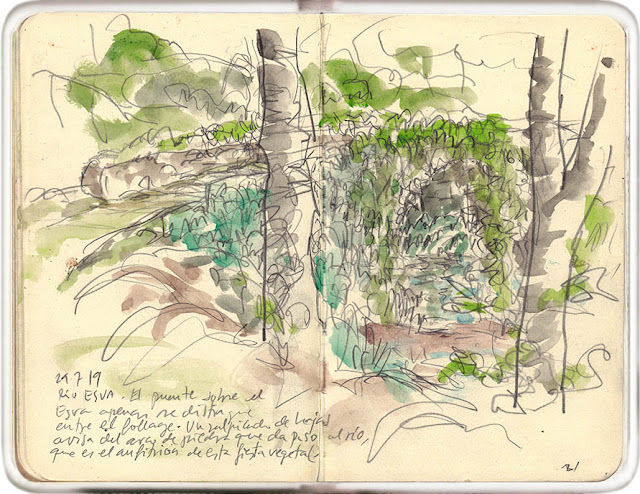 29 7 19
RÍO ESVA. El puente sobre el
Esva apenas se distingue
entre el follage. Un salpicado de hojas
avisa del arco de piedra que da paso al río,
que es el anfitrión de esta fiesta vegetal.